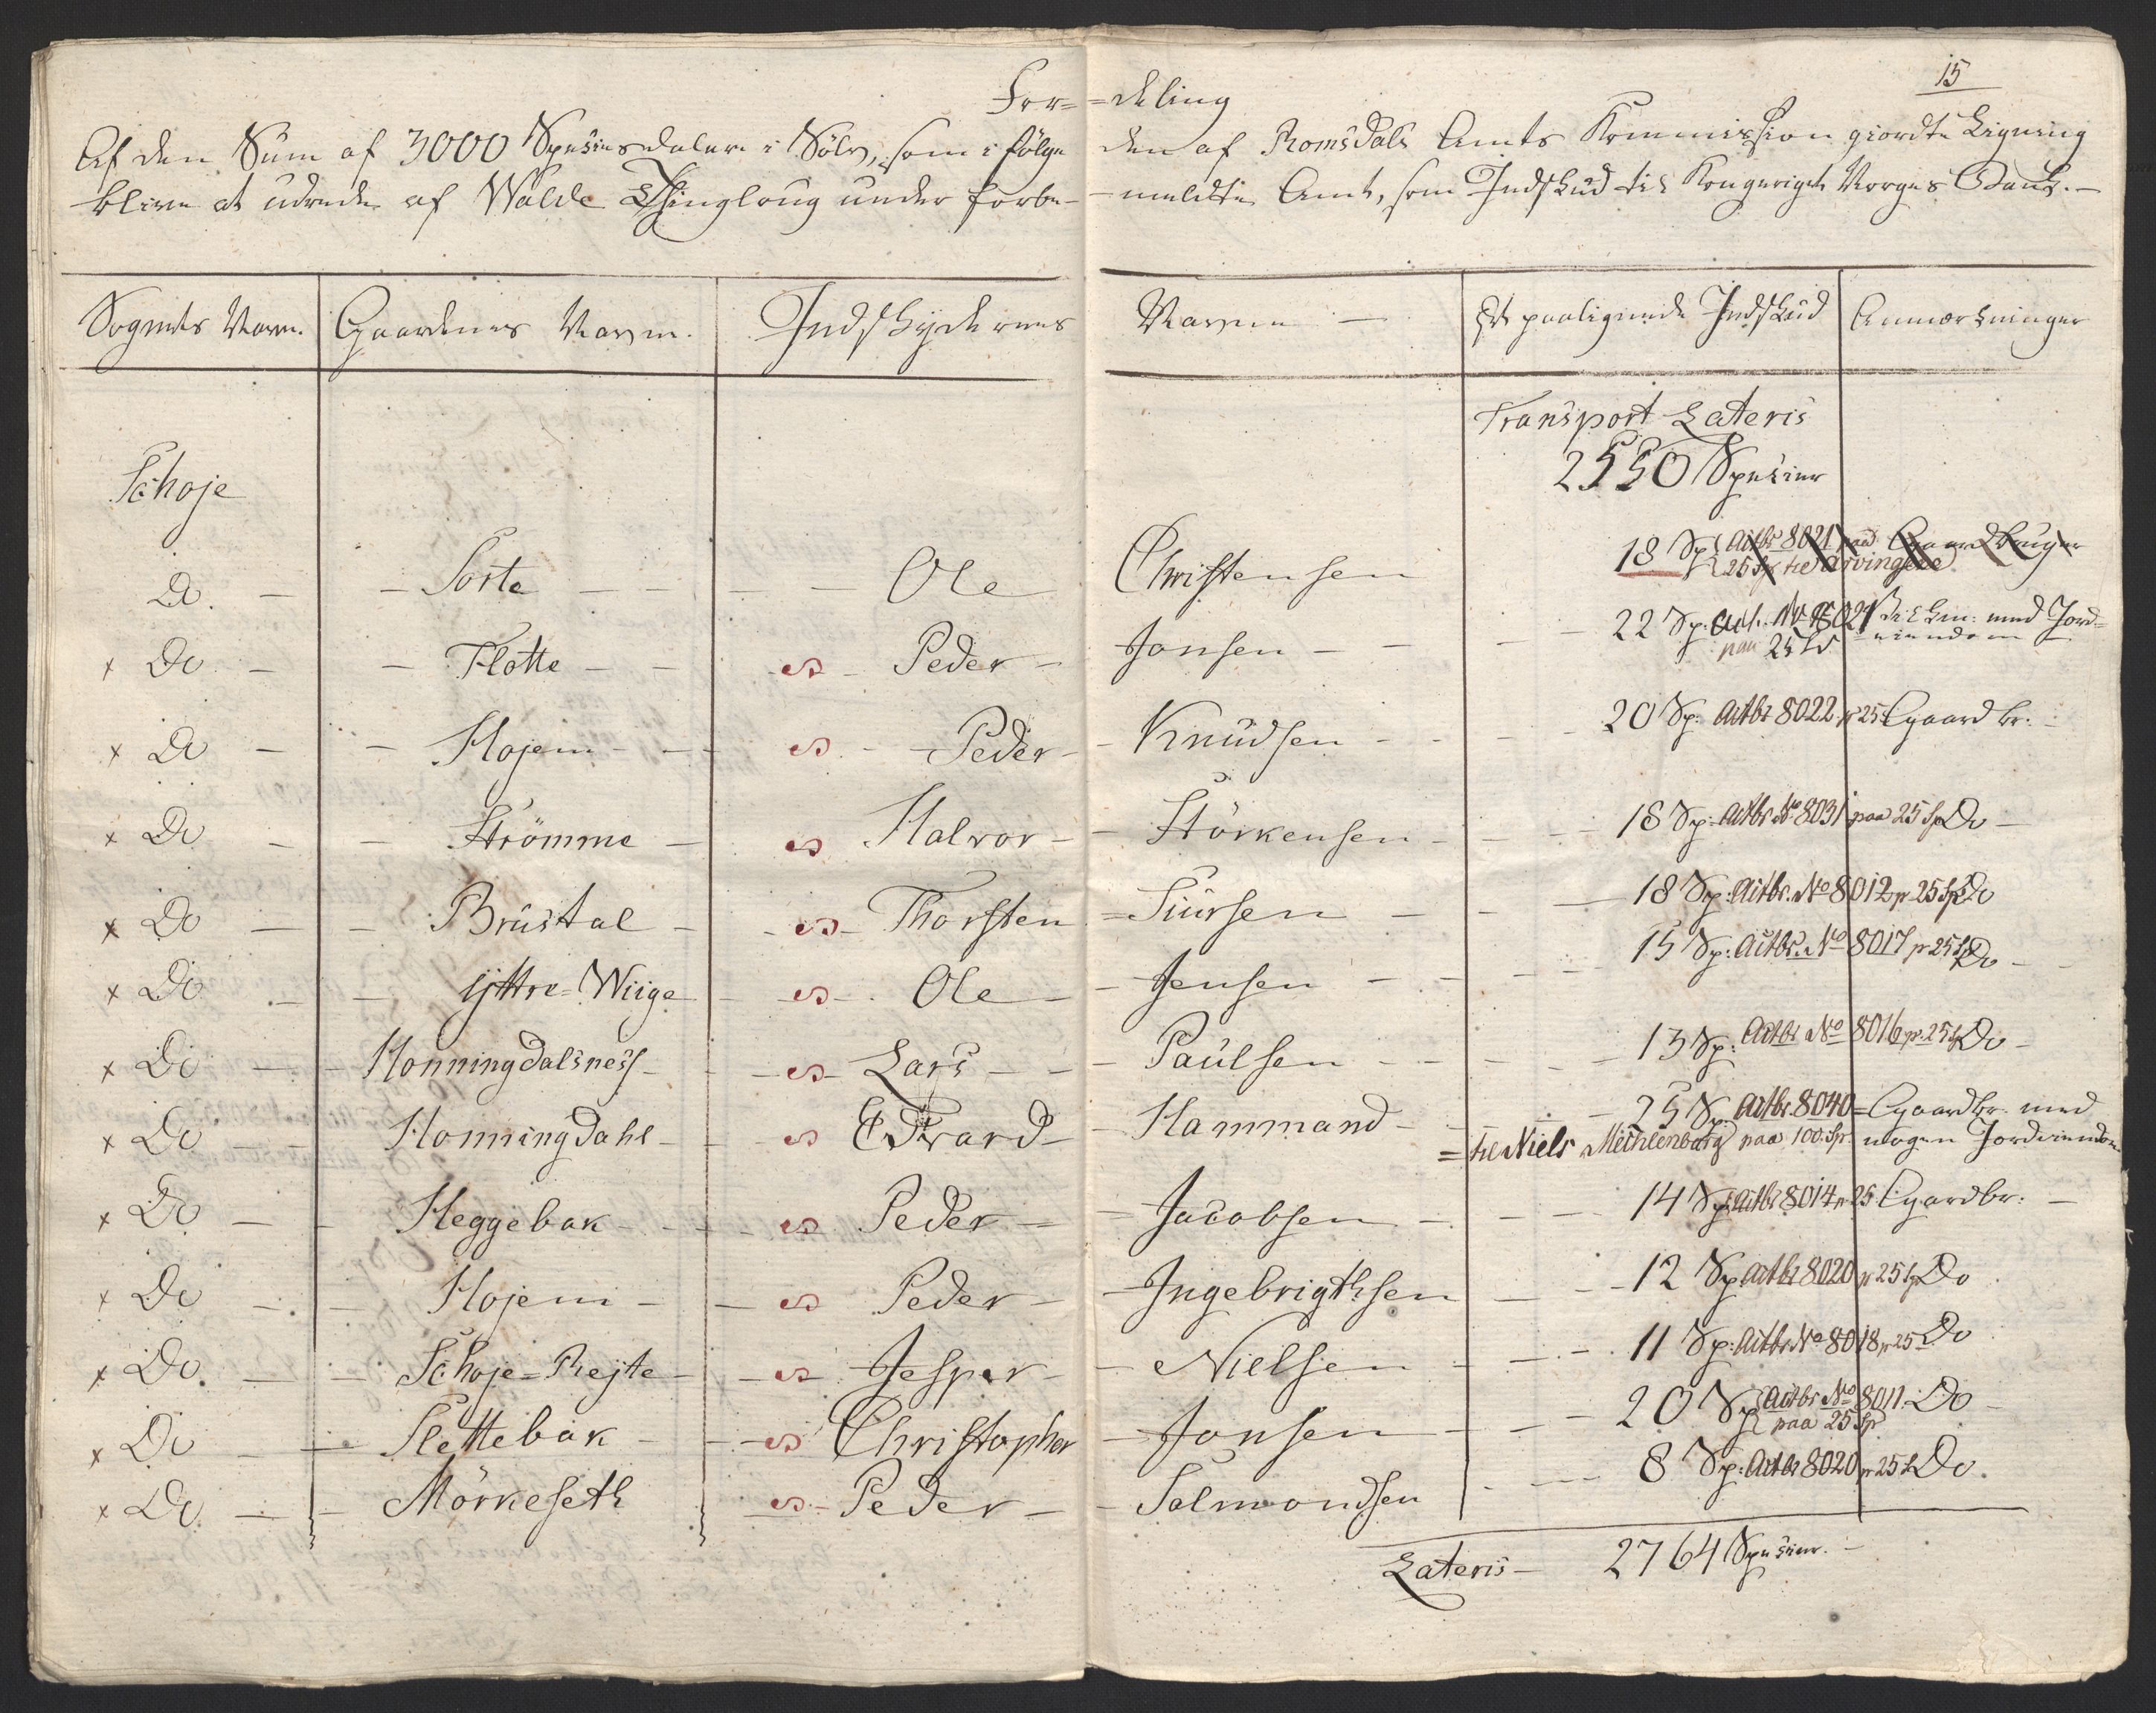 15
For= =deling
Af den Sum af 3000 Speciesdalere i Sölv, som i fölge den af Romsdals Amts Kommission giordte Ligning
bliver at udrede af Walde Thinglaug under forbe- -meldte Amt, som Indskud til Kongeriget Norges Bank. -
Sognets Navn. Gaardenes Navn. Indskydernes Navne - Det paalignede Indskud Anmærkninger
Transport Lateris
2550 Specier
Schoje
Do. - - Sorte - - - - Ole Christensen 18 Sp: Actbr 8021 paa Gaardbruger
25 Sp til Arvingene
x Do. - - Flotte - - es - Peder - Jonsen - - 22 Sp: Act. No 8021 med Jord=
paa 25 Sp =eiendom
x Do - - Hojem - - es - - Peder - - Knudsen - - 20 Sp: Actbr 8022 pr 25 Gaardbr.
x Do - - Strömme - es Halvor - - Störkensen - - 18 Sp: Actbr No 8031 paa 25 Sp Do -
x Do - - Brustal - - es - Thorsten = Siursen - - 18 Sp: Actbr. No 8012 pr 25 Sp Do
x Do - - Yttre=Wiige - es - Ole - - Jensen - - 15 Sp: Actbr. No 8017 pr 25 Sp Do -
x Do - - Honningdalsness - - es - Lars - - Paulsen - - 13 Sp: Actbr No 8016 pr 25 Sp Do -
x Do - - Honningdahl - - es Edvard - - Hammand - - 25 Sp. Actbr. 8040 = Gaardbr. med
= til Niels Mechlenburg paa 100. Sp. nogen Jordeiendom
x Do - - Heggebak - - - es - Peder - - Jacobsen - - 14 Sp: Actbr 8014 pr 25 Gardbr. -
x Do - - Hojem - - es Peder - - Ingebrigthsen - - 12 Sp. Actbr 8020 pr 25 Sp Do
x Do. - - Schoje=Rejte - - es - Jesper - - Nielsen - - 11 Sp: Actbr No 8018 pr 25 Do
x Do - - Slettebak - - es Christopher - Jonsen - - 20 Sp Actbr No 8011 Do -
paa 25 Sp
x Do. - - Mörkeseth es - Peder - - Salmondsen - - 8 Sp: Actbr 8020 pr 25 Sp Do.
Lateris - 2764 Specier. -